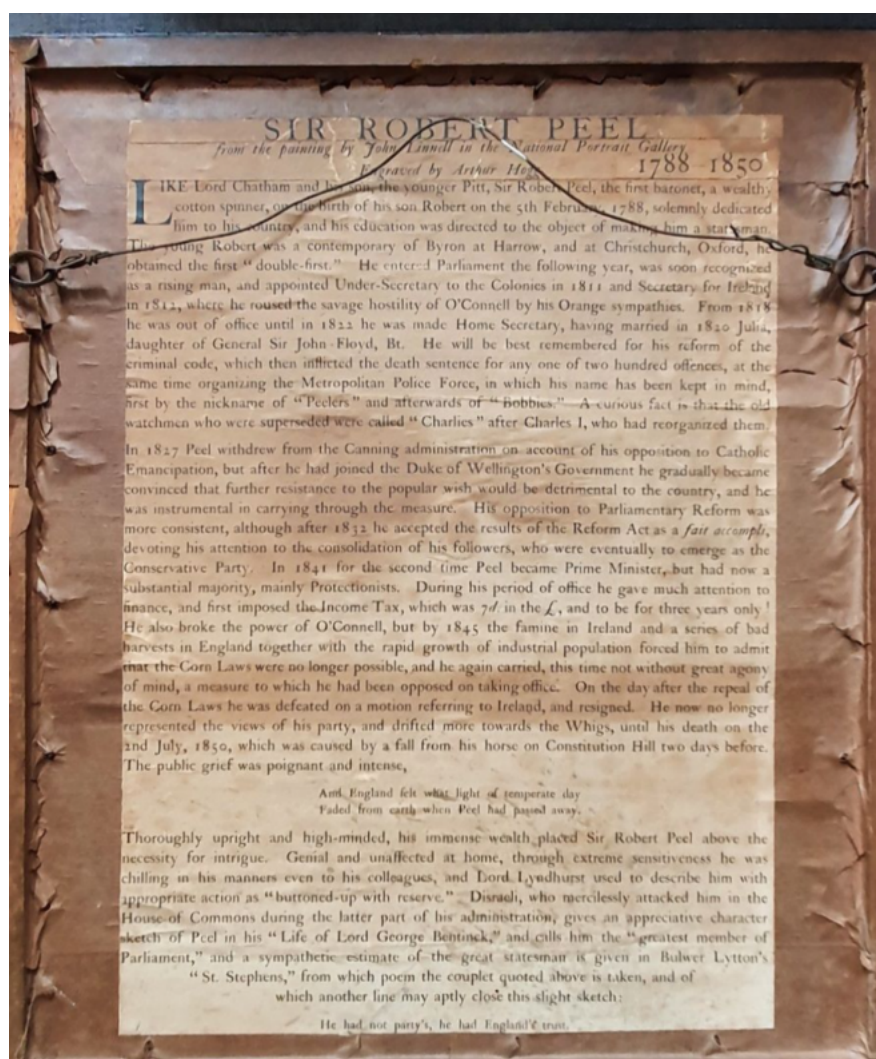 SIR ROBERT PEEL
from the painting by John Linnell in the National Portrait Gallery
Engraved by Arthur Hogg
1788–1850
LIKE Lord Chatham and his son, the younger Pitt, Sir Robert Peel, the first baronet, a wealthy
cotton spinner, on the birth of his son Robert on the 5th February, 1788, solemnly dedicated
him to his country, and his education was directed to the object of making him a statesman.
The young Robert was a contemporary of Byron at Harrow, and at Christchurch, Oxford, he
obtained the first “double-first.” He entered Parliament the following year, was soon recognized
as a rising man, and appointed Under-Secretary to the Colonies in 1811 and Secretary for Ireland
in 1812, where he roused the savage hostility of O'Connell by his Orange sympathies. From 1818
he was out of office until in 1822 he was made Home Secretary, having married in 1820 Julia,
daughter of General Sir John Floyd, Bt. He will be best remembered for his reform of the
criminal code, which then inflicted the death sentence for any one of two hundred offences, at the
same time organizing the Metropolitan Police Force, in which his name has been kept in mind,
first by the nickname of “Peelers” and afterwards of “Bobbies.” A curious fact is that the old
watchmen who were superseded were called “Charlies” after Charles I, who had reorganized them.
In 1827 Peel withdrew from the Canning administration on account of his opposition to Catholic
Emancipation, but after he had joined the Duke of Wellington's Government he gradually became
convinced that further resistance to the popular wish would be detrimental to the country, and he
was instrumental in carrying through the measure. His opposition to Parliamentary Reform was
more consistent, although after 1832 he accepted the results of the Reform Act as a fait accompli,
devoting his attention to the consolidation of his followers, who were eventually to emerge as the
Conservative Party. In 1841 for the second time Peel became Prime Minister, but had now a
substantial majority, mainly Protectionists. During his period of office he gave much attention to
finance, and first imposed the Income Tax, which was 7d in the £, and to be for three years only!
He also broke the power of O'Connell, but by 1845 the famine in Ireland and a series of bad
harvests in England together with the rapid growth of industrial population forced him to admit
that the Corn Laws were no longer possible, and he again carried, this time not without great agony
of mind, a measure to which he had been opposed on taking office. On the day after the repeal of
the Corn Laws he was defeated on a motion referring to Ireland, and resigned. He now no longer
represented the views of his party, and drifted more towards the Whigs, until his death on the
2nd July, 1850, which was caused by a fall from his horse on Constitution Hill two days before.
The public grief was poignant and intense,
And England felt what light of temperate day
Faded from earth when Peel had passed away.
Thoroughly upright and high-minded, his immense wealth placed Sir Robert Peel above the
necessity for intrigue. Genial and unaffected at home, through extreme sensitiveness he was
chilling in his manners even to his colleagues, and Lord Lyndhurst used to describe him with
appropriate action as “buttoned-up with reserve.” Disraeli, who mercilessly attacked him in the
House of Commons during the latter part of his administration, gives an appreciative character
sketch of Peel in his “Life of Lord George Bentinck,” and calls him the “greatest member of
Parliament,” and a sympathetic estimate of the great statesman is given in Bulwer Lytton's
“St. Stephens,” from which poem the couplet quoted above is taken, and of
which another line may aptly close this slight sketch:
He had not party's, he had England's trust.